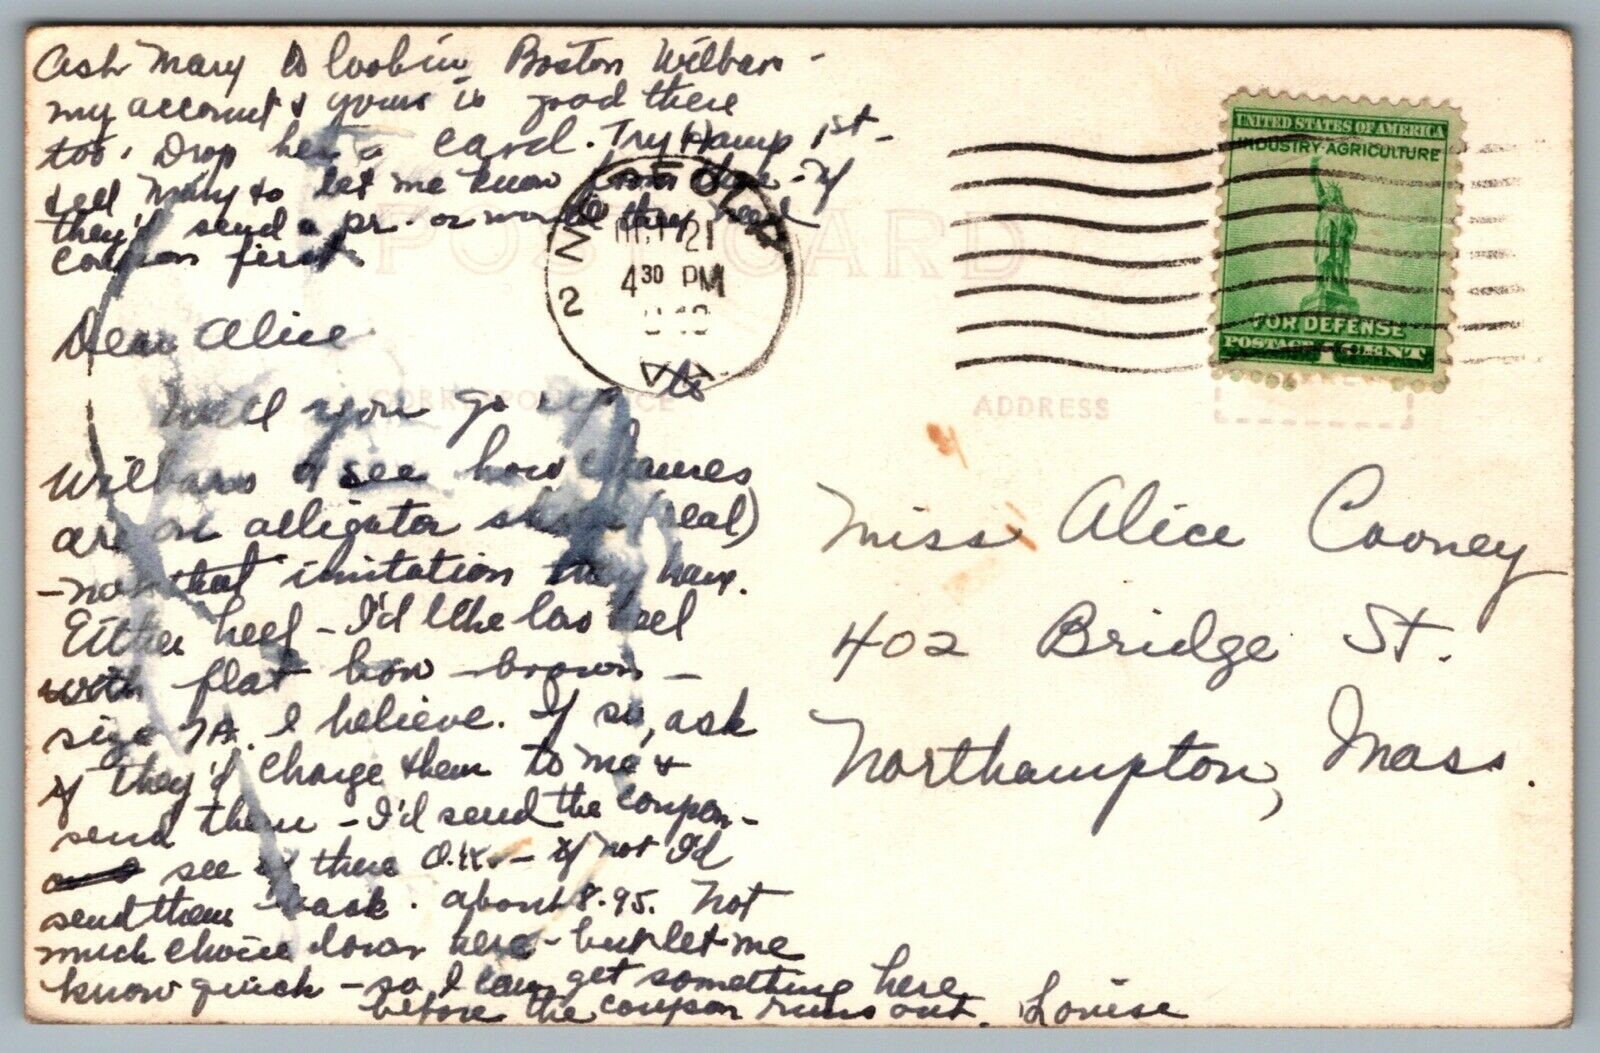 Ask Mary to look in Boston Wilbars -
my account & yours is good there
too. Drop her a card. Try Hamp 1st -
& tell Mary to let me know from there - if
they'd send a pr. or would they need
coupon first.
POST CARD
OCT 21
4 30 PM
2
VA
UNITED STATES OF AMERICA
INDUSTRY-AGRICULTURE
FOR DEFENSE
POSTAGE 1 CENT
CORRESPONDENCE
ADDRESS
Dear Alice
Will you go up to
Wilbars & see how chances
are on alligator shoes (real)
- not that imitation they have.
Either heel - I'd like low heel
with flat bow - brown -
size 7A. I believe. If so, ask
if they'd charge them to me &
send them - I'd send the coupon -
see if there O.K. - if not I'd
send them back. about 8.95. Not
much choice down here - but let me
know quick - so I can get something here
before the coupon runs out. Louise
Miss Alice Cooney
402 Bridge St.
Northampton, Mass.